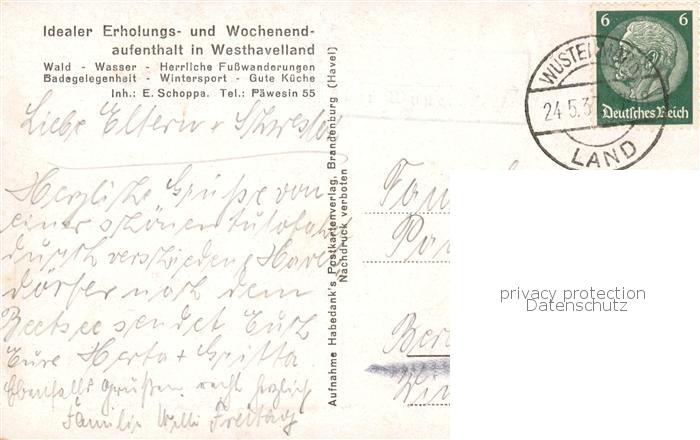 Idealer Erholungs- und Wochenend-
aufenthalt in Westhavelland
Wald - Wasser - Herrliche Fußwanderungen
Badegelegenheit - Wintersport - Gute Küche
Inh.: E. Schoppa. Tel.: Päwesin 55
Liebe Eltern u Schwester
Herzliche Grüße von
einer schönen Autofahrt
durch verschiedene Havel
dörfer nach dem
Beetzsee sendet Euch
Eure Herta + Gritta
Ebenfalls Grüßen recht herzlich
Familie Willi Freitag
Aufnahme Habedank's Postkartenverlag, Brandenburg (Havel)
Nachdruck verboten
6 6
Deutsches Reich
WUSTER
24.5.3
LAND
Fam
Pa
Ber
privacy protection
Datenschutz